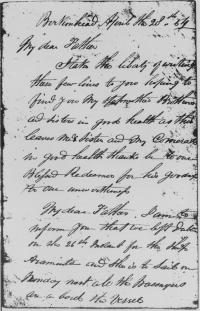 Berkinhead, April the 28th 54
My dear Father
I take the liberty of writing
these few lines to you hoping to
find you My Mother Brothers
and Sisters in good health as this
leaves Me Sister and My Comerads
in good health thanks be to our
Blessed Redeemer for his goodness
to our
My dear Father. I am to
inform you that we left
on the 26th Instant for the Ship
Araminta and She is to Sail on
Monday next all the Passengers
are a board the Vessel